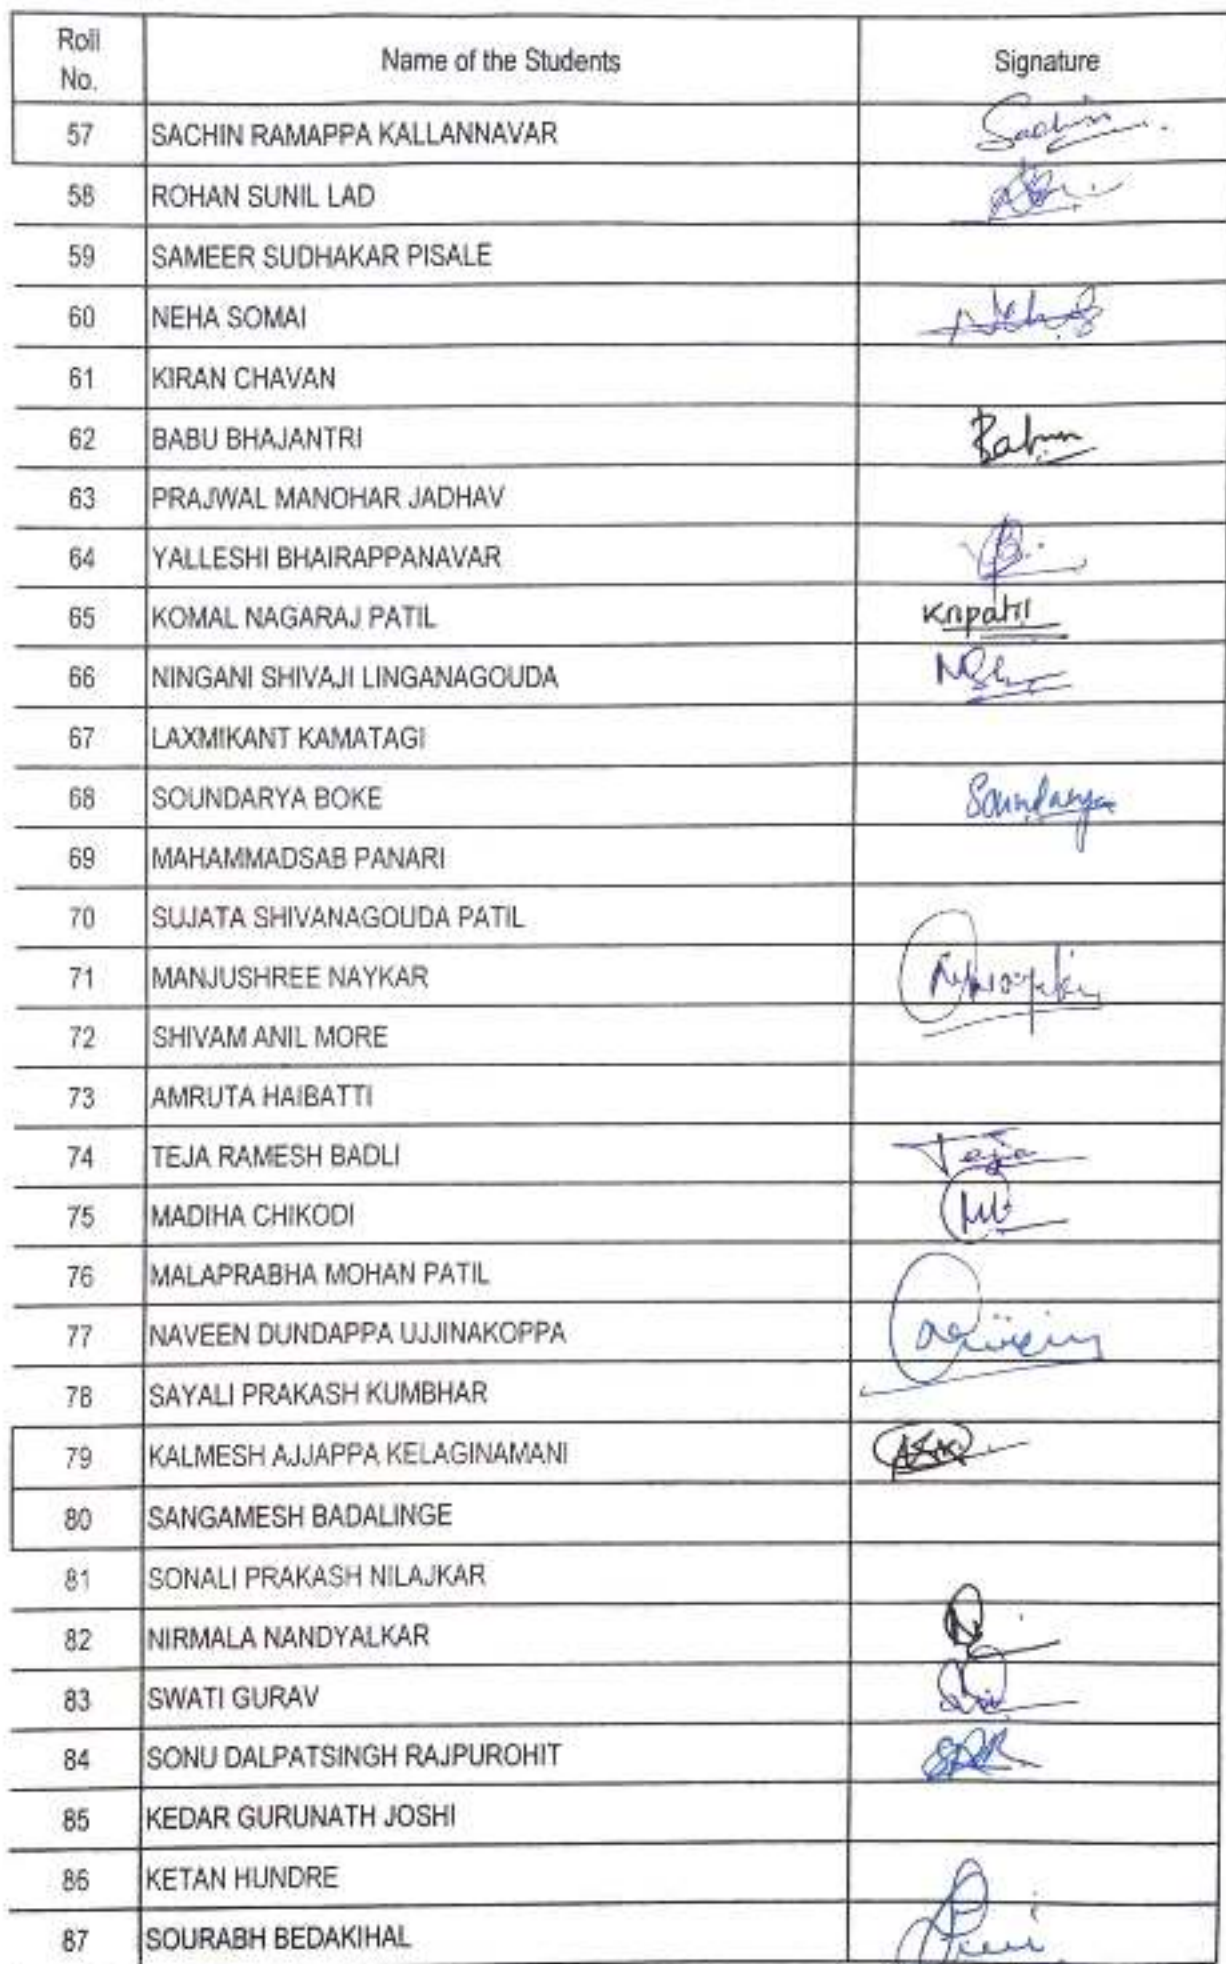 Roll No. Name of the Students Signature
57 SACHIN RAMAPPA KALLANNAVAR Sachin
58 ROHAN SUNIL LAD
59 SAMEER SUDHAKAR PISALE
60 NEHA SOMAI Neha
61 KIRAN CHAVAN
62 BABU BHAJANTRI Babu
63 PRAJWAL MANOHAR JADHAV
64 YALLESHI BHAIRAPPANAVAR
65 KOMAL NAGARAJ PATIL Knpatil
66 NINGANI SHIVAJI LINGANAGOUDA
67 LAXMIKANT KAMATAGI
68 SOUNDARYA BOKE Soundarya
69 MAHAMMADSAB PANARI
70 SUJATA SHIVANAGOUDA PATIL
71 MANJUSHREE NAYKAR
72 SHIVAM ANIL MORE
73 AMRUTA HAIBATTI
74 TEJA RAMESH BADLI Teja
75 MADIHA CHIKODI
76 MALAPRABHA MOHAN PATIL
77 NAVEEN DUNDAPPA UJJINAKOPPA
78 SAYALI PRAKASH KUMBHAR
79 KALMESH AJJAPPA KELAGINAMANI
80 SANGAMESH BADALINGE
81 SONALI PRAKASH NILAJKAR
82 NIRMALA NANDYALKAR
83 SWATI GURAV
84 SONU DALPATSINGH RAJPUROHIT
85 KEDAR GURUNATH JOSHI
86 KETAN HUNDRE
87 SOURABH BEDAKIHAL